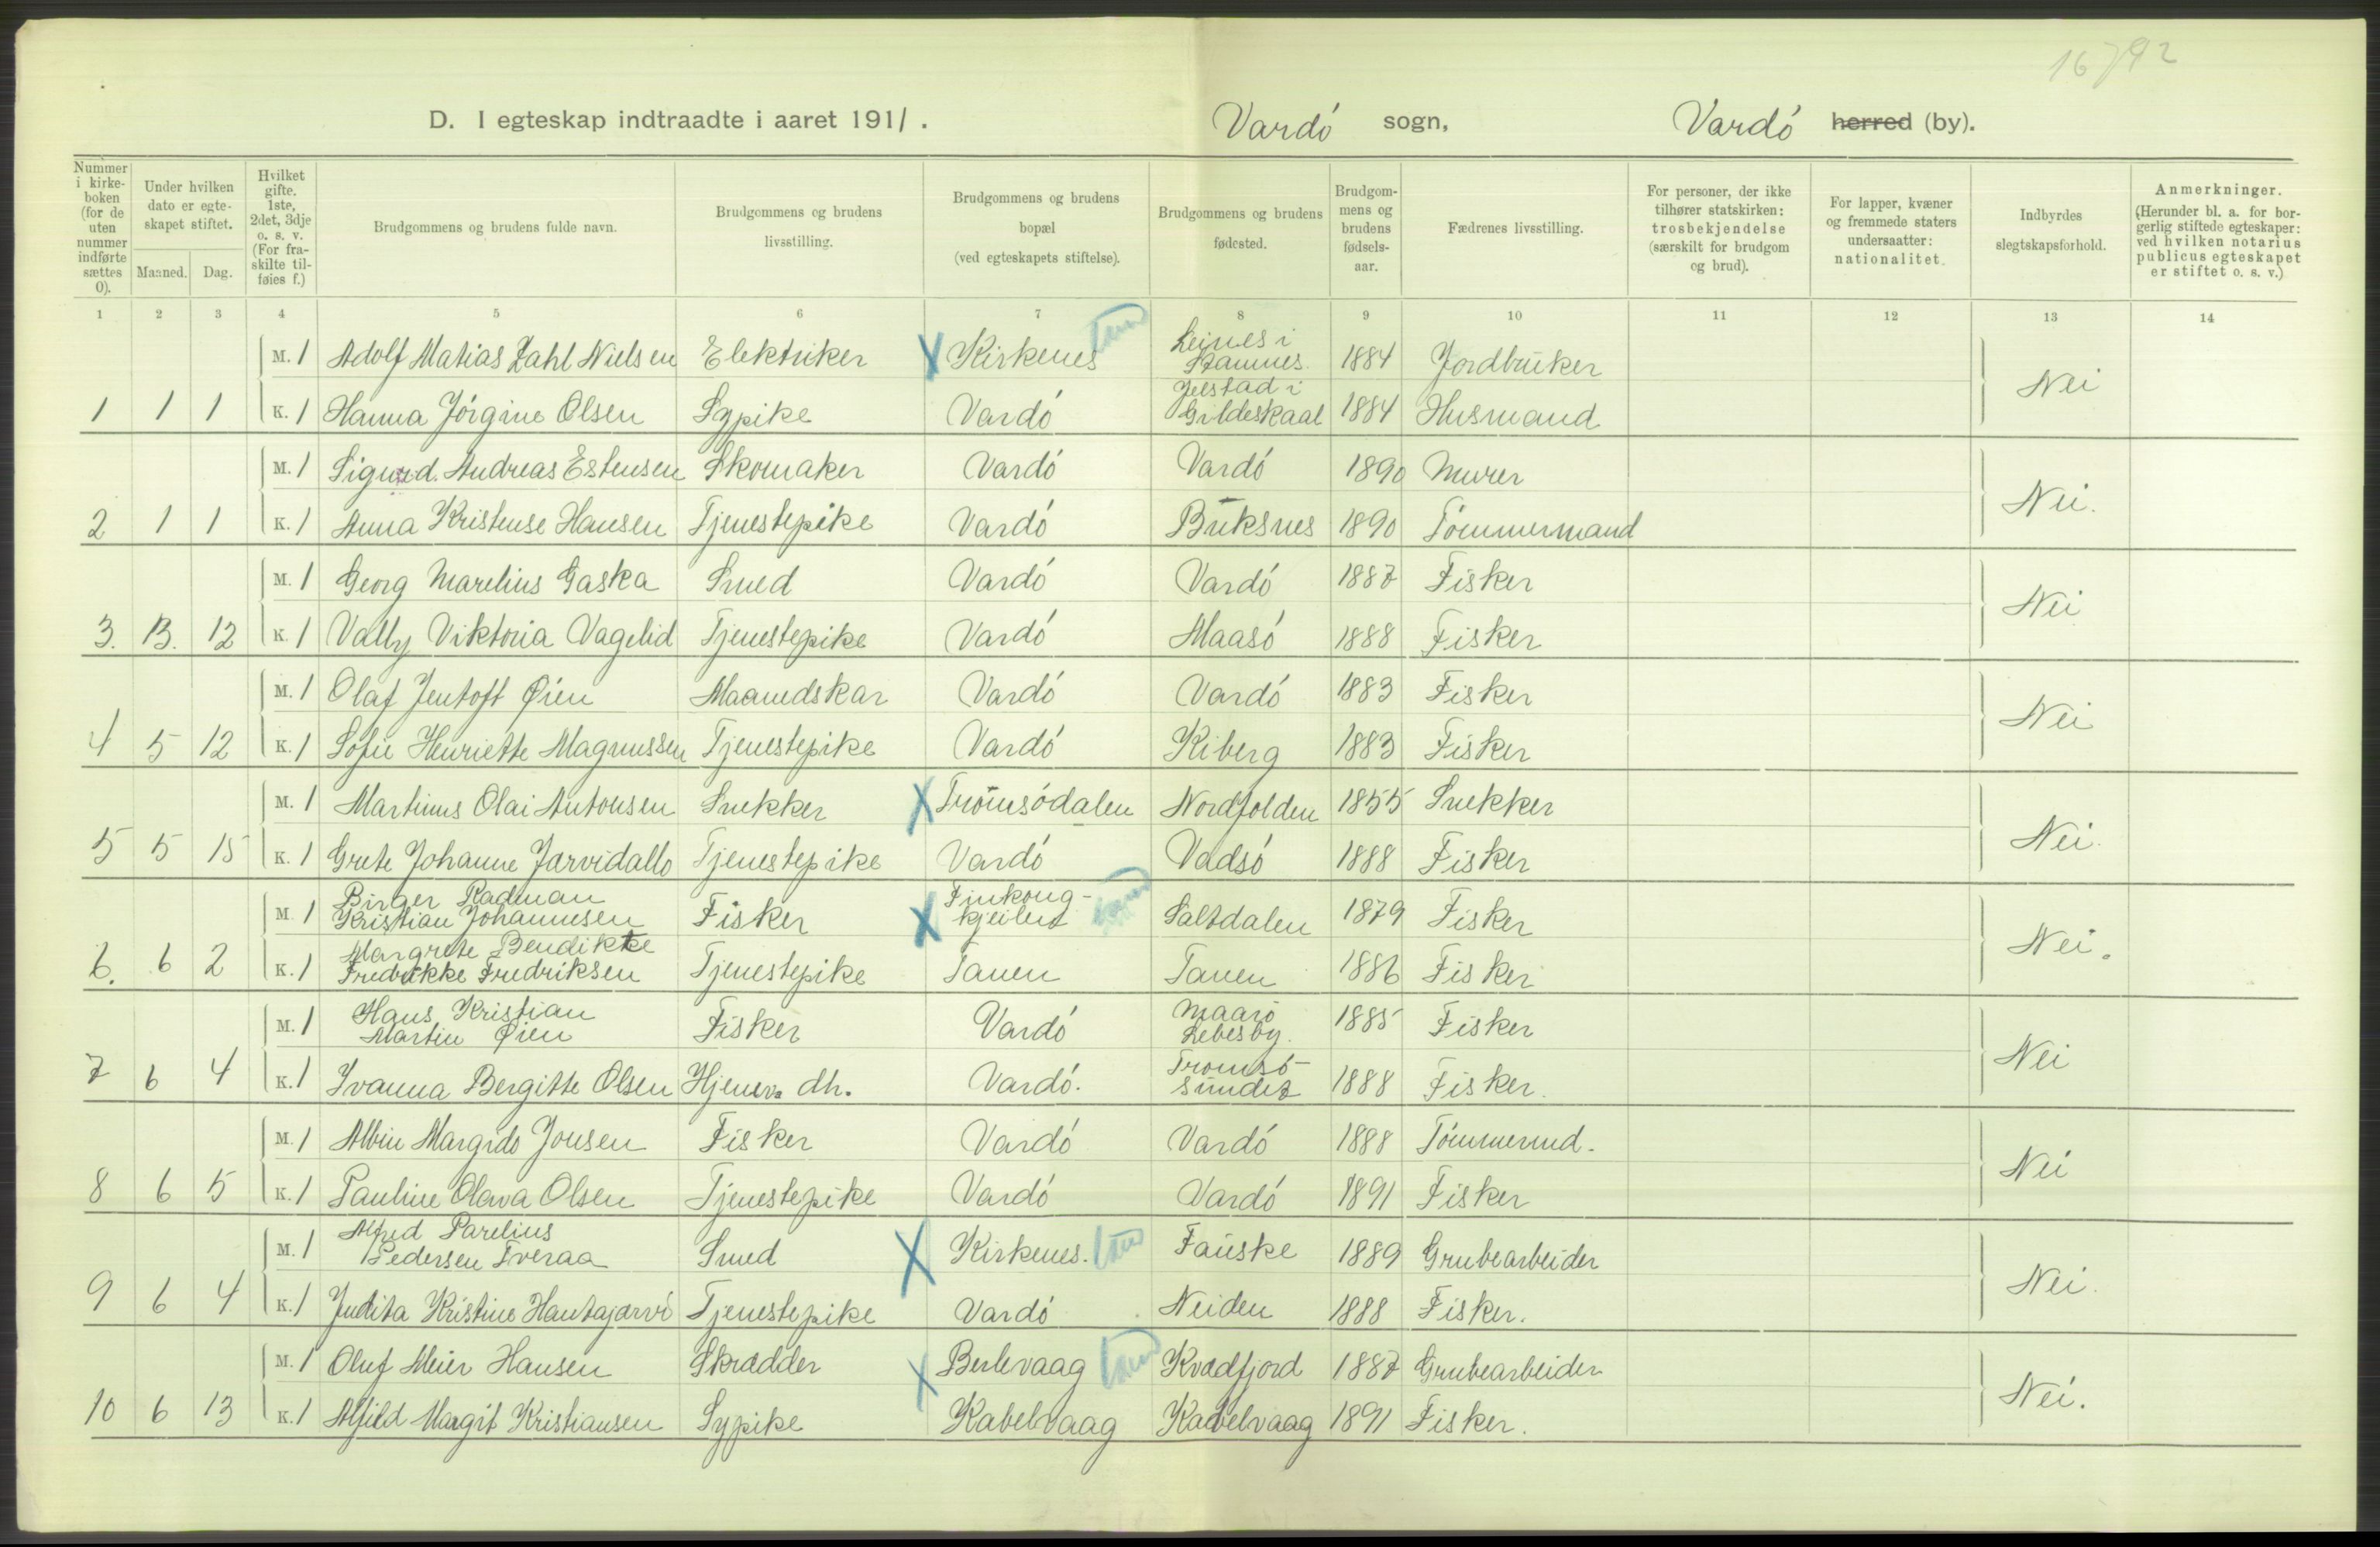 16792
D. I egteskap indtraadte i aaret 1911. Vardó sogn, Vardó herred (by).
Nummer i kirke-boken (for de uten nummer indførte sættes 0).
Under hvilken dato er egte-skapet stiftet.
Maaned. Dag.
Hvilket gifte. 1ste, 2det, 3dje o. s. v. (For fra-skilte til-føies f.)
Brudgommens og brudens fulde navn.
Brudgommens og brudens livsstilling.
Brudgommens og brudens bopæl (ved egteskapets stiftelse).
Brudgommens og brudens fødested.
Brudgom-mens og brudens fødsels-aar.
Fædrenes livsstilling.
For personer, der ikke tilhører statskirken: trosbekjendelse (særskilt for brudgom og brud).
For lapper, kvæner og fremmede staters undersaatter: nationalitet.
Indbyrdes slegtskapsforhold.
Anmerkninger. (Herunder bl. a. for bor-gerlig stiftede egteskaper: ved hvilken notarius publicus egteskapet er stiftet o. s. v.)
1 2 3 4 5 6 7 8 9 10 11 12 13 14
M. 1 Adolf Matias Zahl Nielsen Elektriker X Kirkenes Leines i Stamnes. 1884 Jordbruker
1 1 1 K. 1 Hanna Jórgine Olsen Sypike Vardó Jelstad i Gildeskaal 1884 Husmand Nei
M. 1 Sigurd. Andreas Estensen Skomaker Vardó Vardó 1890 Murer
2 1 1 K. 1 Anna Kristense Hansen Tjenestepike Vardó Buksnes 1890 Tómmermand Nei.
M. 1 Georg Marelius Gaska Smed Vardó Vardó 1887 Fisker
3. 3. 12 K. 1 Vally Viktoria Vagelid Tjenestepike Vardó Maasó 1888 Fisker Nei
M. 1 Olaf Jentoft Øien Maanedskar Vardó Vardó 1883 Fisker
4 5 12 K. 1 Sofie Henriette Magnussen Tjenestepike Vardó Kiberg 1883 Fisker Nei
M. 1 Martinus Olai Antonsen Snekker X Tromsódalen Nordfolden 1855 Snekker
5 5 15 K. 1 Grete Johanne Jarvidallo Tjenestepike Vardó Vadsó 1888 Fisker Nei.
M. 1 Birger Radman Kristian Johannesen Fisker X Finkong-kjeilen Saltdalen 1879 Fisker
6. 6 2 K. 1 Margrete Bendikke Fredrikke Fredriksen Tjenestepike Tanen Tanen 1886 Fisker Nei.
M. 1 Hans Kristian Martin Øien Fisker Vardó Maasó Lebesby. 1885 Fisker
7 6 4 K. 1 Ivanna Bergitte Olsen Hjemv. dtr. Vardó. Tromsó-sundet 1888 Fisker. Nei
M. 1 Albin Margido Jonsen Fisker Vardó Vardó 1888 Tómmermd.
8 6 5 K. 1 Pauline Olava Olsen Tjenestepike Vardó Vardó 1891 Fisker Nei
M. 1 Alfred Parelius Pedersen Tveraa Smed X Kirkenes. Fauske 1889 Grubearbeider
9 6 4 K. 1 Judita Kristine Hautajarvi Tjenestepike Vardó Neiden 1888 Fisker. Nei.
M. 1 Oluf Meier Hansen Skrædder X Berlevaag Kvædfjord 1887 Grubearbeider
10 6 13 K. 1 Alfild Margit Kristiansen Sypike Kabelvaag Kabelvaag 1891 Fisker. Nei.